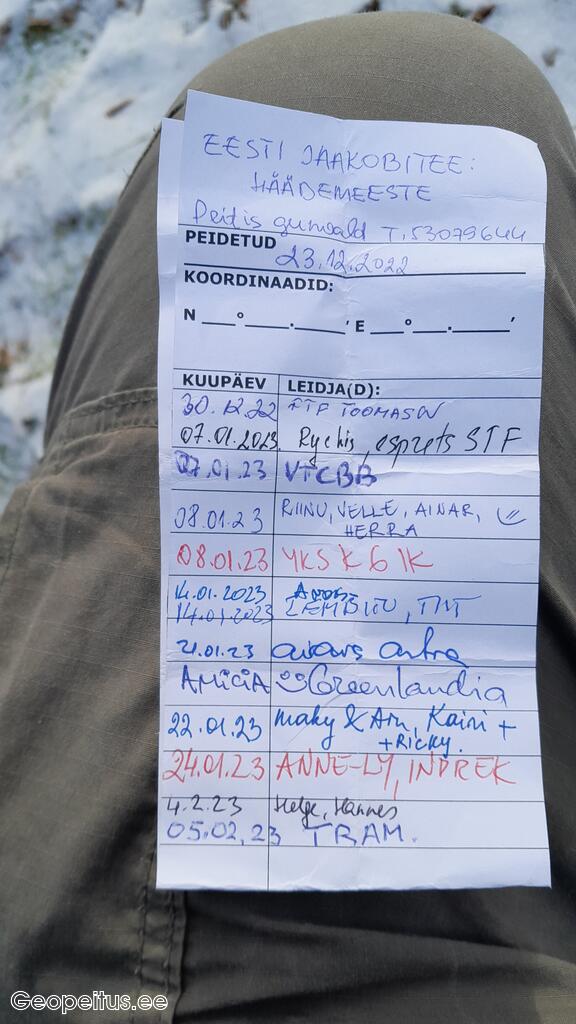 EESTI JAAKOBITEE:
HÄÄDEMEESTE
Peitis gunvald T. 53079644
PEIDETUD 23.12.2022
KOORDINAADID:
N ___°____.____,' E ___°___.____,'
KUUPÄEV LEIDJA(D):
30.12.22 FTF TOOMASW
07.01.2023 Rychis, esprets STF
07.01.23 VTCBB
08.01.23 RIINU, VELLE, AINAR,
HERRA
08.01.23 YKS K6IK
14.01.2023
14.01.2023 LEMBITU, TNT
21.01.23
AMICIA Greenlandia
22.01.23 maky & Arn, Kairi +
+RICKY.
24.01.23 ANNE-LY, INDREK
4.2.23 Helge, Hannes
05.02.23 TRAM.
Geopeitus.ee